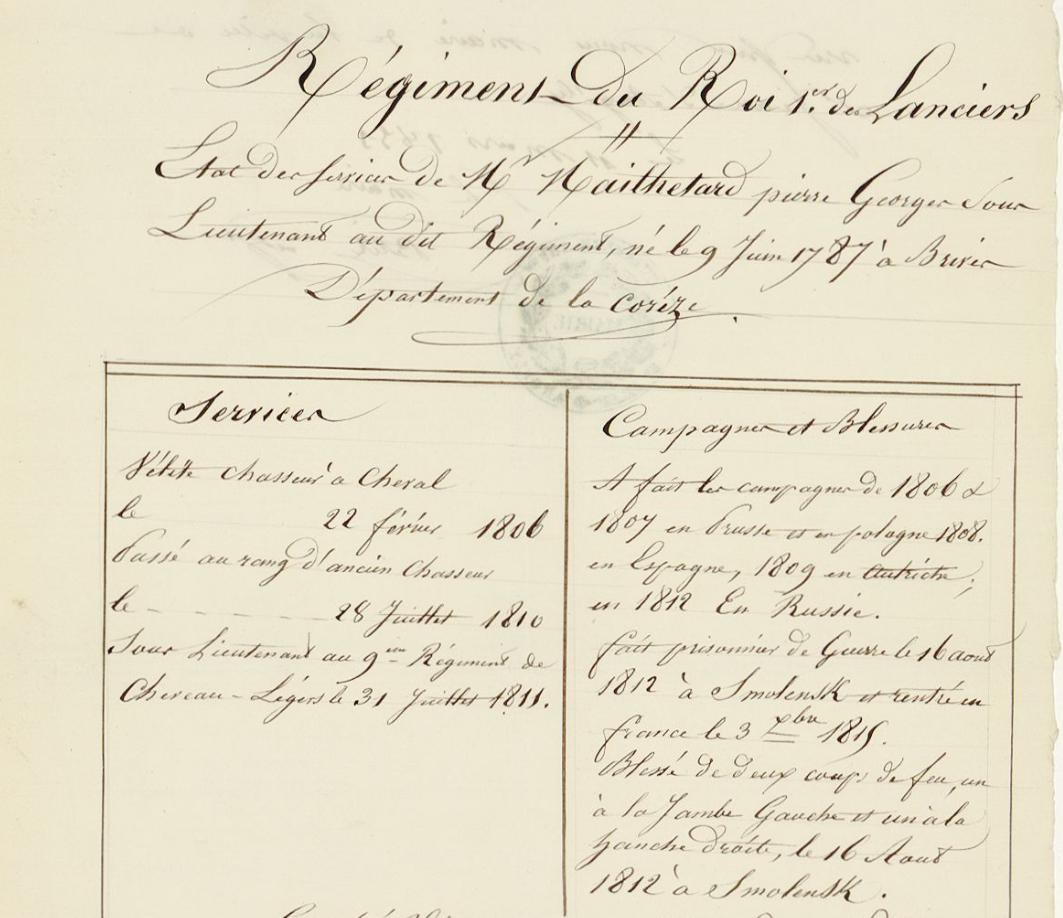 Régiment du Roi 1.er des Lanciers
Etat des services de Mr Mailhetard pierre Georges Sous
Lieutenant au dit Régiment, né le 9 Juin 1787 à Brives
Département de la Corèze.
Services
Vélite chasseur à Cheval
le 22 février 1806
Passé au rang d'ancien Chasseur
le - - - - - 28 Juillet 1810
Sous Lieutenant au 9me Régiment de
Chevau-Légers le 31 Juillet 1811.
Campagnes et Blessures
A fait les campagnes de 1806 &
1807 en Prusse et en pologne 1808.
en Espagne, 1809 en Autriche;
en 1812 En Russie.
fait prisonnier de Guerre le 16 aout
1812 à Smolensk et rentré en
france le 3 Xbre 1815.
Blessé de deux coups de feu, un
à la Jambe Gauche et un à la
hanche droite, le 16 Aout
1812 à Smolensk.